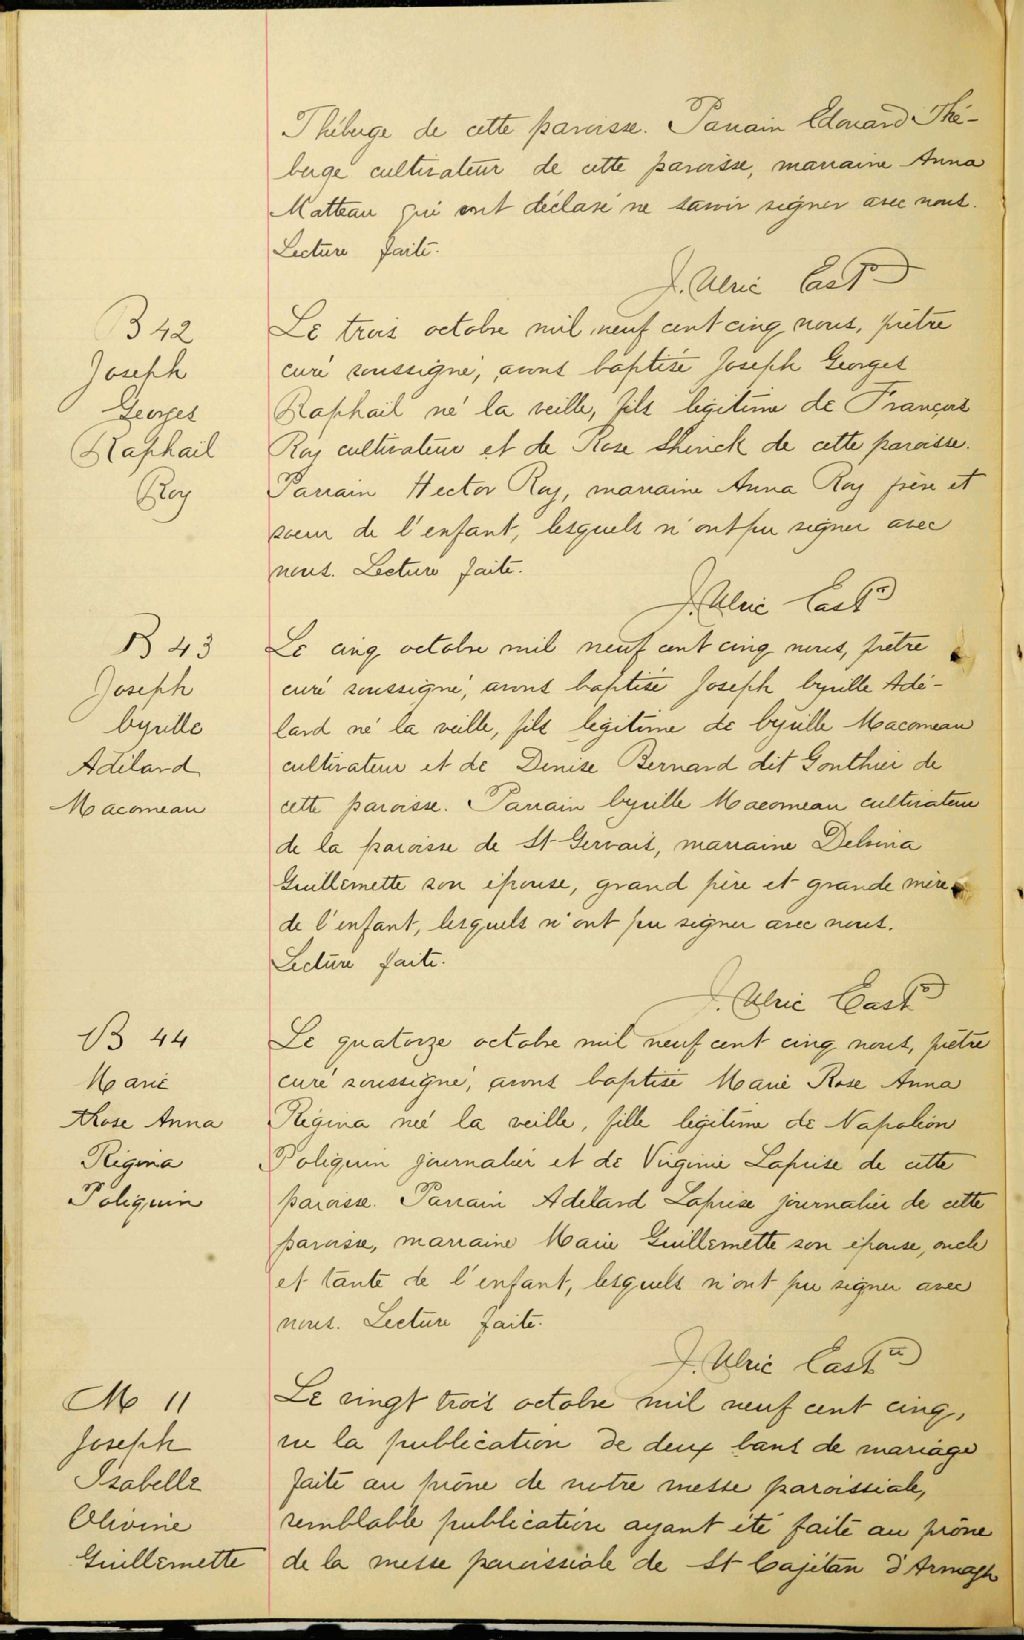 Théberge de cette paroisse. Parrain Edouard Thé-
berge cultivateur de cette paroisse, marraine Anna
Matteau qui ont déclaré ne savoir signer avec nous.
Lecture faite.
J. Ulric East
B 42
Joseph
Georges
Raphaïl
Roy
Le trois octobre mil neuf cent cinq nous, prêtre
curé soussigné, avons baptisé Joseph Georges
Raphaïl né la veille, fils légitime de François
Roy cultivateur et de Rose Shinick de cette paroisse.
Parrain Hector Roy, marraine Anna Roy frère et
soeur de l'enfant, lesquels n'ont pu signer avec
nous. Lecture faite.
J. Ulric East
B 43
Joseph
Cyrille
Adélard
Macomeau
Le cinq octobre mil neuf cent cinq nous, prêtre
curé soussigné, avons baptisé Joseph Cyrille Adé-
lard né la veille, fils légitime de Cyrille Macomeau
cultivateur et de Denise Bernard dit Gonthier de
cette paroisse. Parrain Cyrille Macomeau cultivateur
de la paroisse de St Gervais, marraine Delvina
Guillemette son épouse, grand père et grande mère
de l'enfant, lesquels n'ont pu signer avec nous.
Lecture faite.
J. Ulric East
B 44
Marie
Rose Anna
Régina
Poliquin
Le quatorze octobre mil neuf cent cinq nous, prêtre
curé soussigné, avons baptisé Marie Rose Anna
Régina née la veille, fille légitime de Napoléon
Poliquin journalier et de Virginie Laprise de cette
paroisse. Parrain Adélard Laprise journalier de cette
paroisse, marraine Marie Guillemette son épouse, oncle
et tante de l'enfant, lesquels n'ont pu signer avec
nous. Lecture faite.
J. Ulric East
M 11
Joseph
Isabelle
Olivine
Guillemette
Le vingt trois octobre mil neuf cent cinq,
vu la publication de deux bans de mariage
faite au prône de notre messe paroissiale,
semblable publication ayant été faite au prône
de la messe paroissiale de St Cajétan d'Armagh